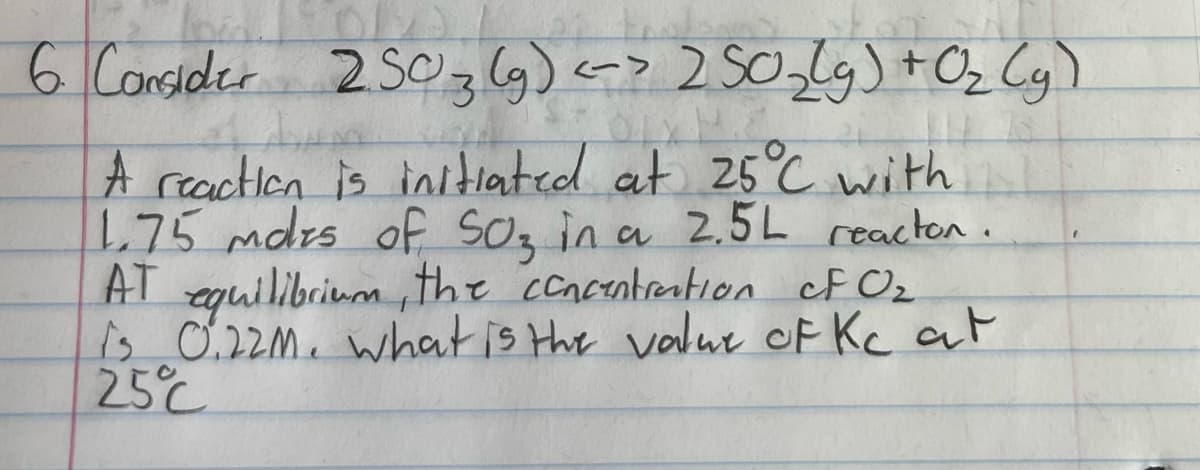 6. Consider 2 SO₃ (g) <-> 2 SO₂(g) + O₂ (g)
A reaction is initiated at 25°C with
1.75 moles of SO₃ in a 2.5L reacton.
AT equilibrium, the concentration of O₂
is 0.22M. what is the value of Kc at
25°C